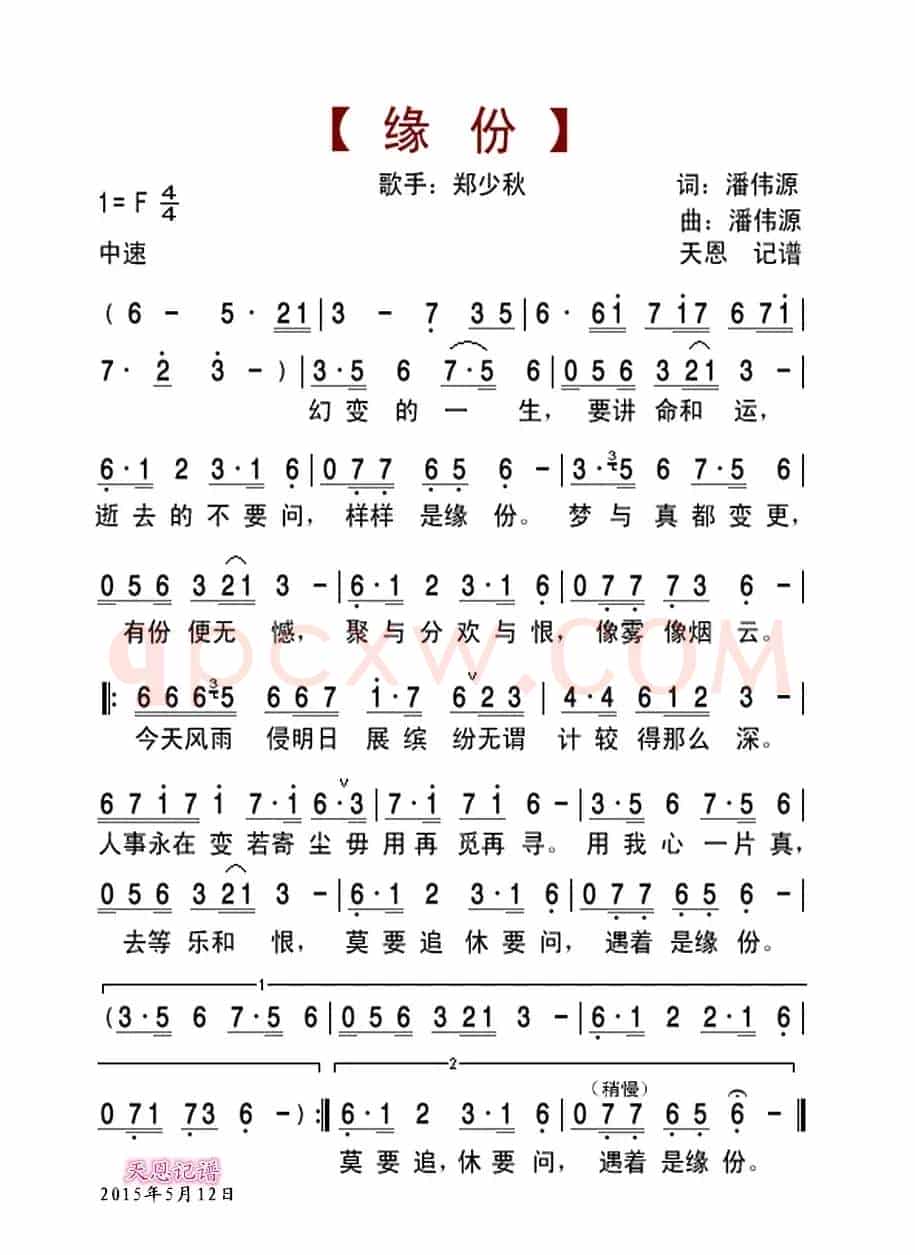 【 缘 份 】
歌手：郑少秋 词：潘伟源
1= F 4/4 曲：潘伟源
中速 天恩 记谱
( 6 – 5 · 21 | 3 – 7 35 | 6 · 61 717 671 |
7 · 2 3 – ) | 3·5 6 7·5 6 | 056 321 3 – |
幻 变 的 一 生， 要讲 命和 运，
6·1 2 3·1 6 | 077 65 6 – | 3·35 6 7·5 6 |
逝去的 不要问， 样样 是缘 份。 梦与 真都变更，
056 321 3 – | 6·1 2 3·1 6 | 077 73 6 – |
有份 便无 憾， 聚与分欢与恨， 像雾 像烟 云。
qpcxw.COM
‖: 66635 667 1·7 623 | 4·4 612 3 – |
今天风雨 侵明日 展缤 纷无谓 计较 得那么 深。
6717 1 7·1 6·3 | 7·1 71 6 – | 5·5 3 7·5 6 |
人事永在 变若寄尘毋用再 觅再 寻。用我心一片真，
056 321 3 – | 6·1 2 3·1 6 | 077 65 6 – |
去等 乐和 恨， 莫要追 休要问， 遇着 是缘 份。
1
( 3·5 6 7·5 6 | 056 321 3 – | 6·1 2 2·1 6 |
2
（稍慢）
071 73 6 – ) :‖ 6·1 2 3·1 6 | 077 65 6 – ‖
莫要追，休要问， 遇着 是缘 份。
天恩记谱
2015年5月12日